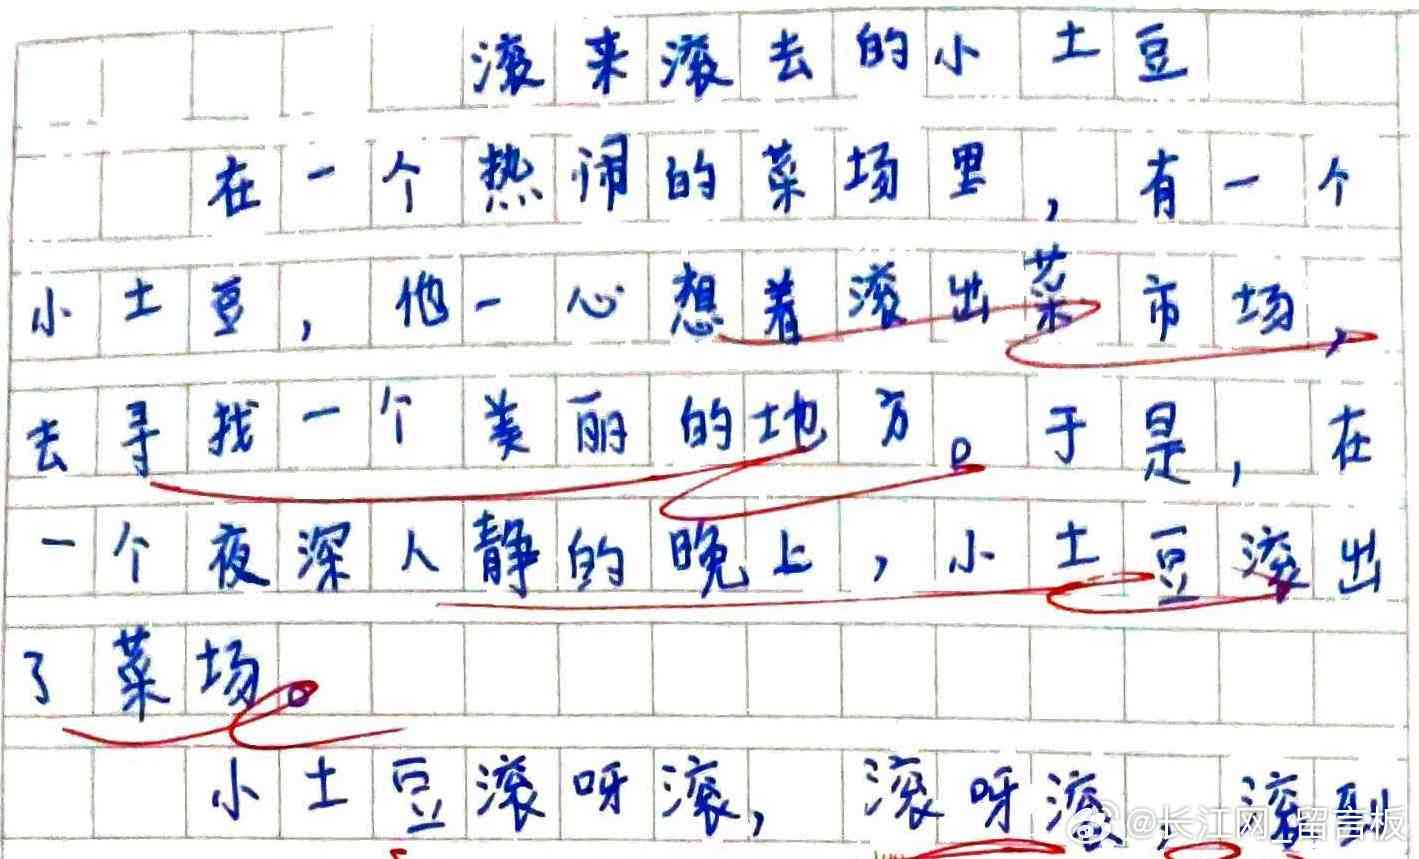 滚来滚去的小土豆
在一个热闹的菜场里，有一个
小土豆，他一心想着滚出菜市场，
去寻找一个美丽的地方。于是，在
一个夜深人静的晚上，小土豆滚出
了菜场。
小土豆滚呀滚，滚呀滚，滚到
@长江网_留言板